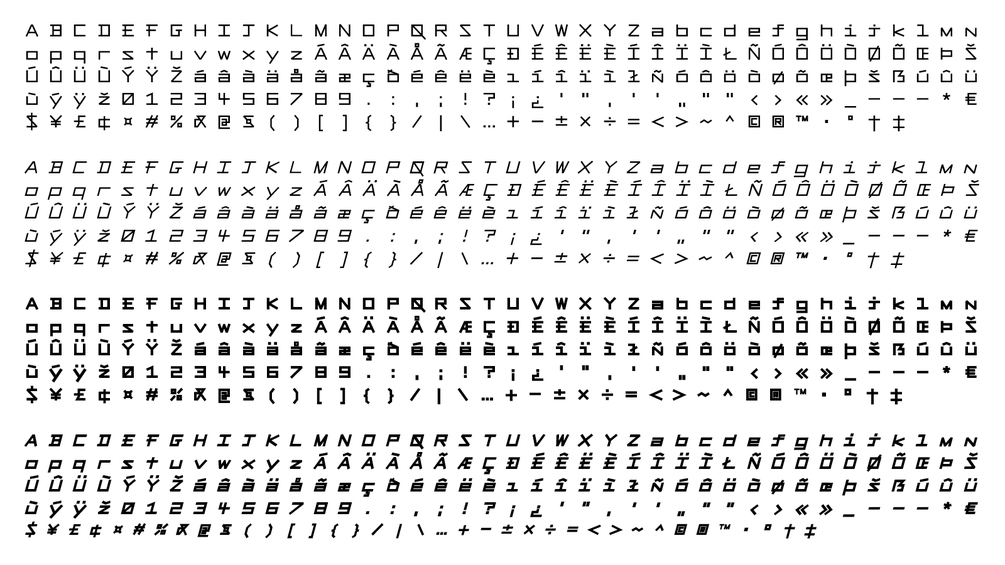 A B C D E F G H I J K L M N O P Q R S T U V W X Y Z a b c d e f g h i j k l m n
o p q r s t u v w x y z Á Â Ä À Å Ã Æ Ç Ð É Ê Ë È Í Î Ï Ì Ł Ñ Ó Ô Ö Ò Ø Õ Œ Þ Š
Ú Û Ü Ù Ý Ÿ Ž á â ä à å ã æ ç ð é ê ë è ı í î ï ì ł ñ ó ô ö ò ø õ œ þ š ß ú û ü
ù ý ÿ ž 0 1 2 3 4 5 6 7 8 9 . : , ; ! ? ¡ ¿ ' " ‚ ‘ ’ „ “ ” ‹ › « » _ - – — * €
$ ¥ £ ¢ ¤ # % & @ § ( ) [ ] { } / | \ … + − ± × ÷ = < > ~ ^ © ® ™ · ° † ‡
A B C D E F G H I J K L M N O P Q R S T U V W X Y Z a b c d e f g h i j k l m n
o p q r s t u v w x y z Á Â Ä À Å Ã Æ Ç Ð É Ê Ë È Í Î Ï Ì Ł Ñ Ó Ô Ö Ò Ø Õ Œ Þ Š
Ú Û Ü Ù Ý Ÿ Ž á â ä à å ã æ ç ð é ê ë è ı í î ï ì ł ñ ó ô ö ò ø õ œ þ š ß ú û ü
ù ý ÿ ž 0 1 2 3 4 5 6 7 8 9 . : , ; ! ? ¡ ¿ ' " ‚ ‘ ’ „ “ ” ‹ › « » _ - – — * €
$ ¥ £ ¢ ¤ # % & @ § ( ) [ ] { } / | \ … + − ± × ÷ = < > ~ ^ © ® ™ · ° † ‡
A B C D E F G H I J K L M N O P Q R S T U V W X Y Z a b c d e f g h i j k l m n
o p q r s t u v w x y z Á Â Ä À Å Ã Æ Ç Ð É Ê Ë È Í Î Ï Ì Ł Ñ Ó Ô Ö Ò Ø Õ Œ Þ Š
Ú Û Ü Ù Ý Ÿ Ž á â ä à å ã æ ç ð é ê ë è ı í î ï ì ł ñ ó ô ö ò ø õ œ þ š ß ú û ü
ù ý ÿ ž 0 1 2 3 4 5 6 7 8 9 . : , ; ! ? ¡ ¿ ' " ‚ ‘ ’ „ “ ” ‹ › « » _ - – — * €
$ ¥ £ ¢ ¤ # % & @ § ( ) [ ] { } / | \ … + − ± × ÷ = < > ~ ^ © ® ™ · ° † ‡
A B C D E F G H I J K L M N O P Q R S T U V W X Y Z a b c d e f g h i j k l m n
o p q r s t u v w x y z Á Â Ä À Å Ã Æ Ç Ð É Ê Ë È Í Î Ï Ì Ł Ñ Ó Ô Ö Ò Ø Õ Œ Þ Š
Ú Û Ü Ù Ý Ÿ Ž á â ä à å ã æ ç ð é ê ë è ı í î ï ì ł ñ ó ô ö ò ø õ œ þ š ß ú û ü
ù ý ÿ ž 0 1 2 3 4 5 6 7 8 9 . : , ; ! ? ¡ ¿ ' " ‚ ‘ ’ „ “ ” ‹ › « » _ - – — * €
$ ¥ £ ¢ ¤ # % & @ § ( ) [ ] { } / | \ … + − ± × ÷ = < > ~ ^ © ® ™ · ° † ‡